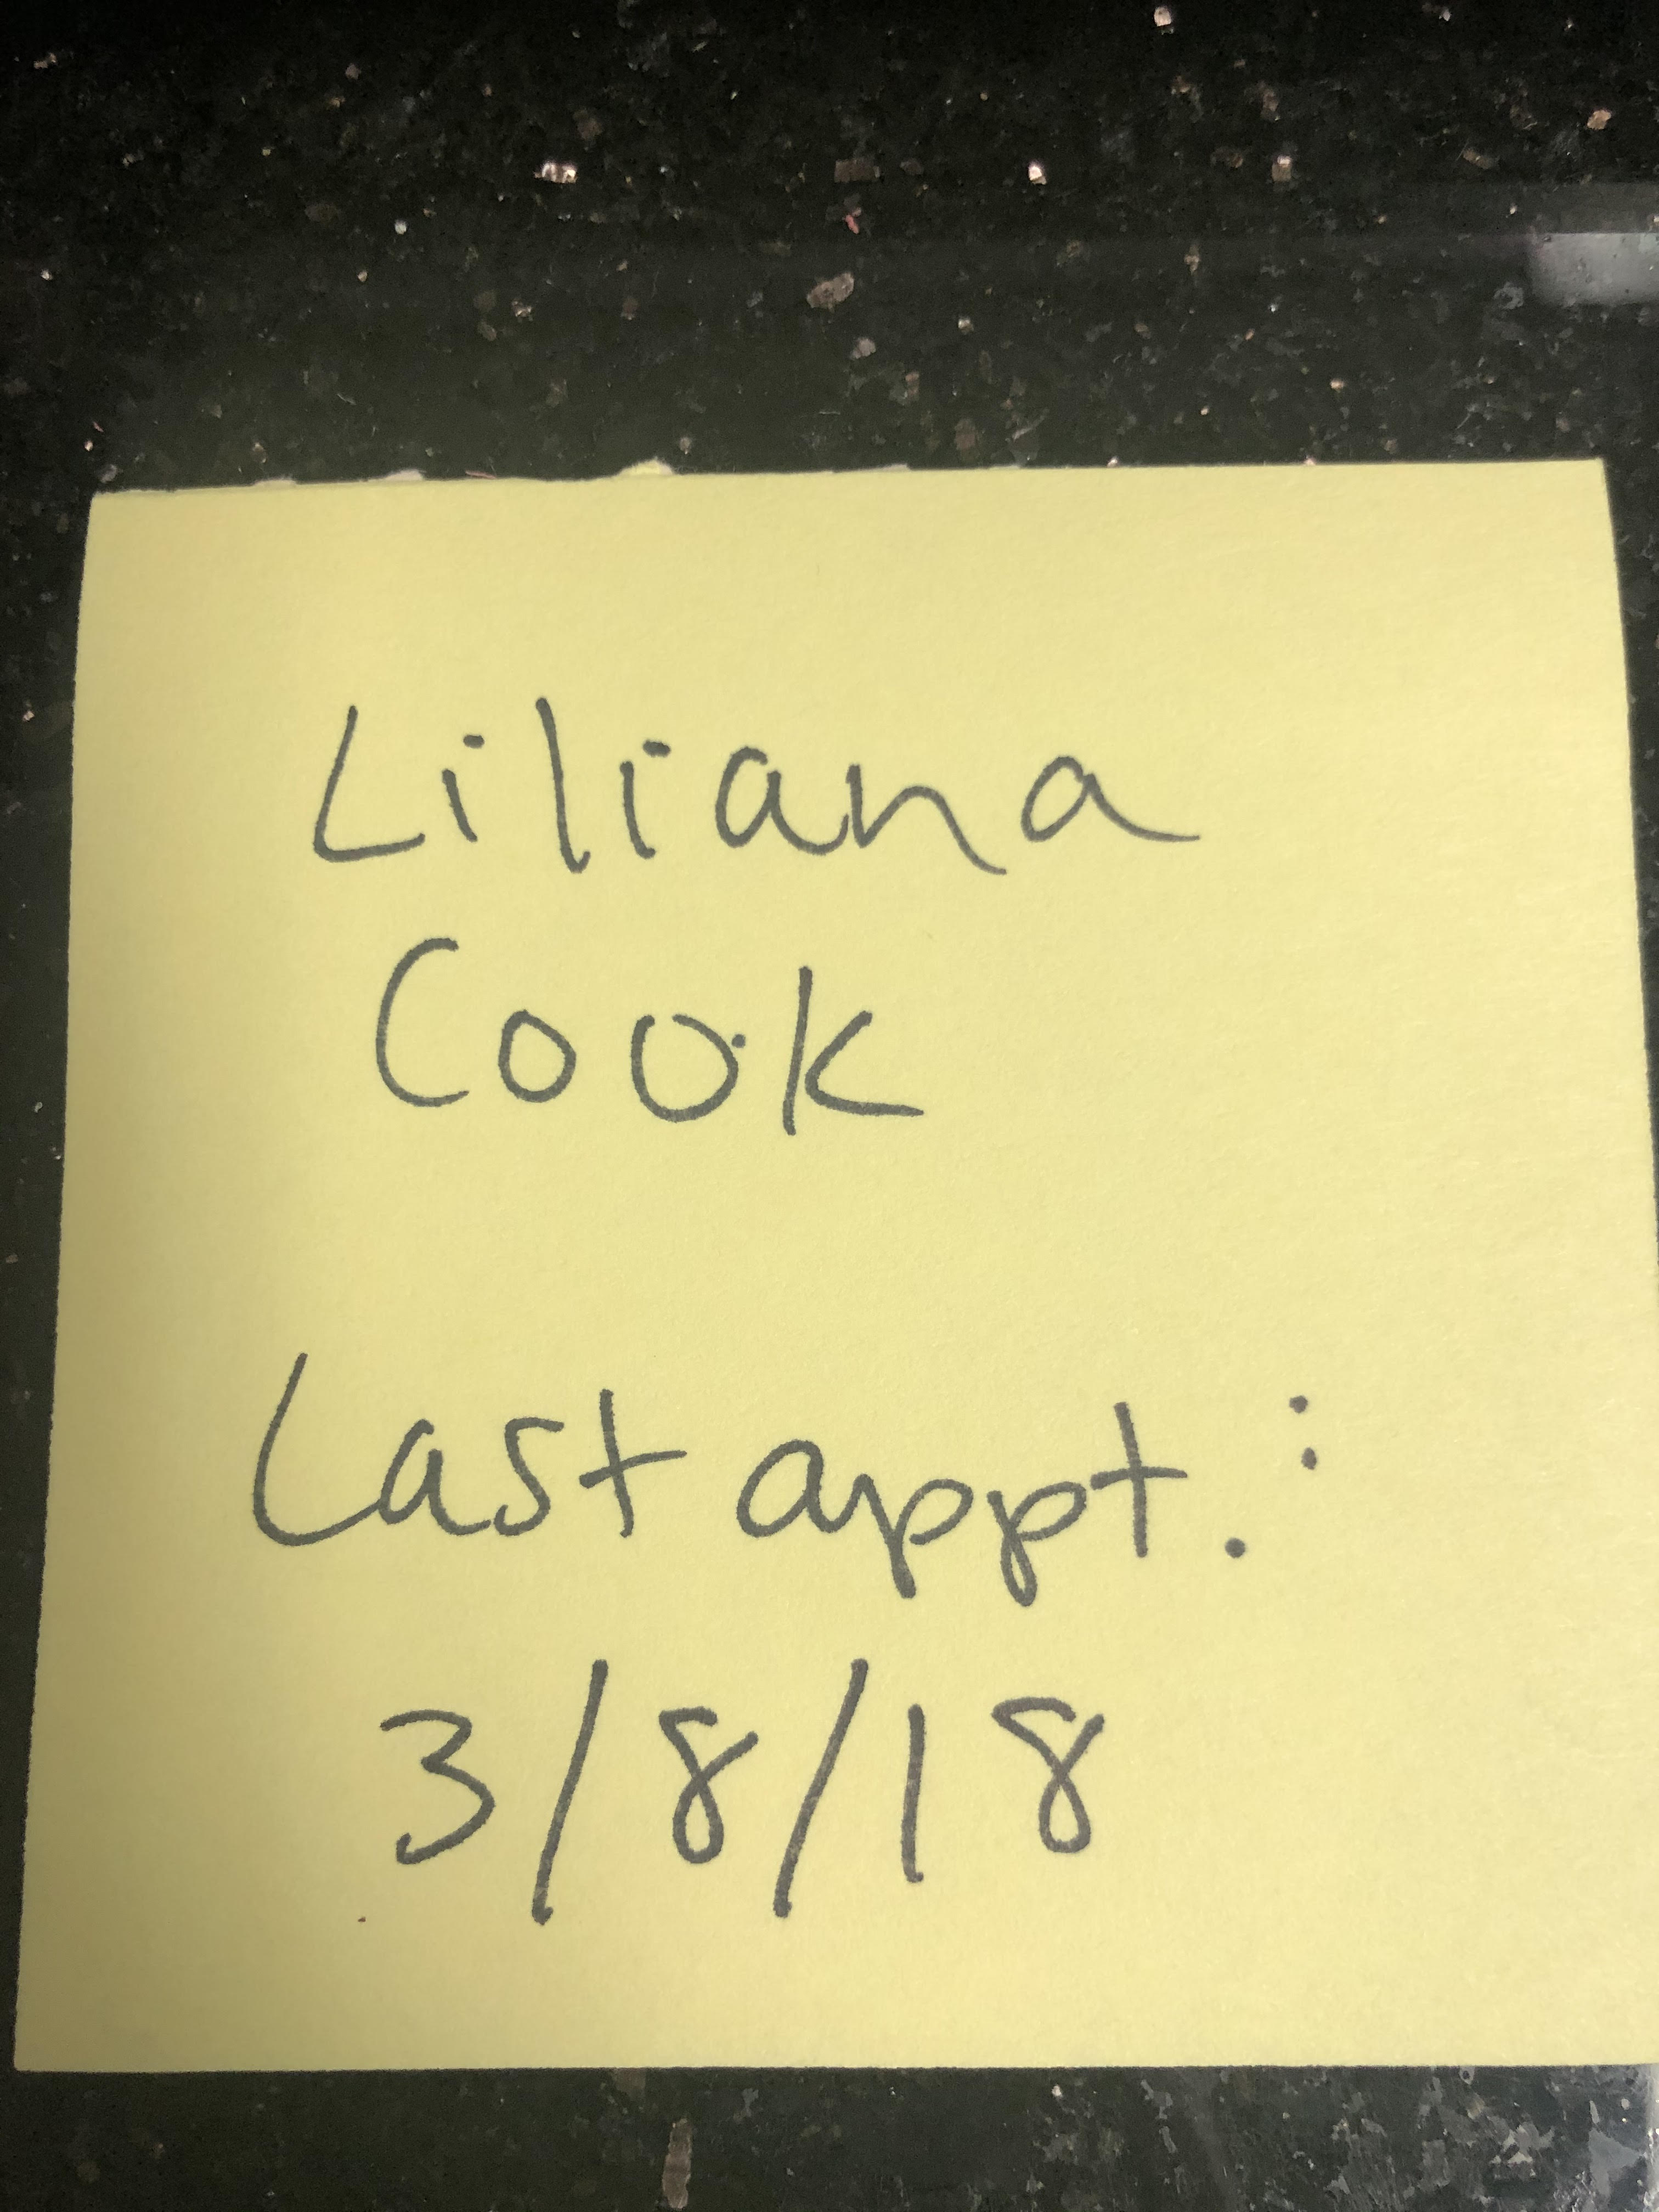 Liliana
Cook
Last appt.:
3/8/18